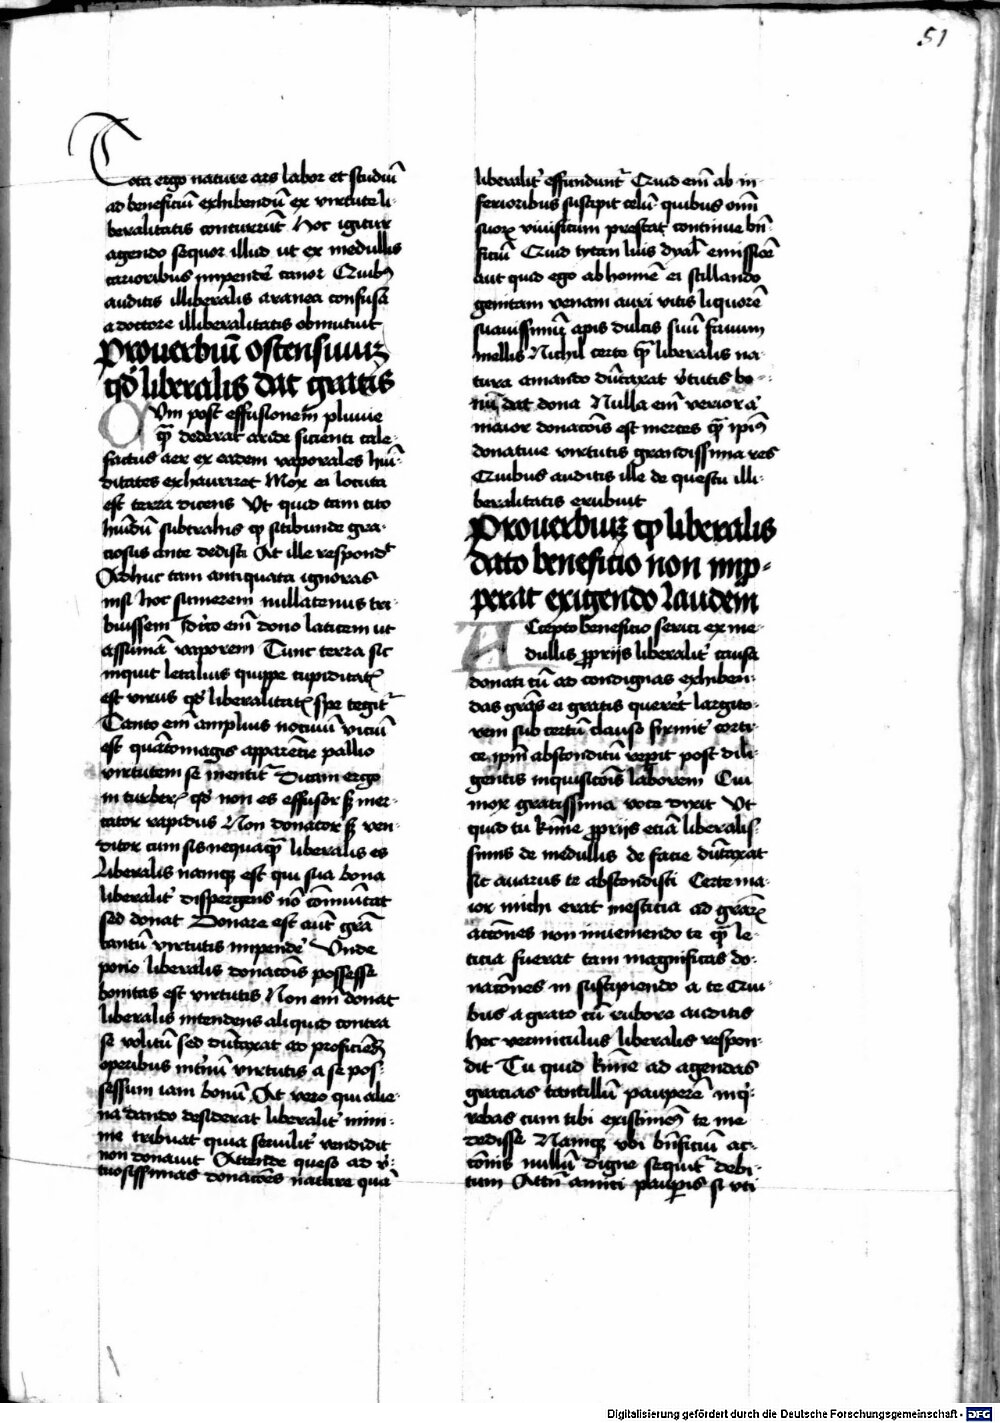 51
Tota ergo nature ars labor et studiū
ad beneficiū exhibendū ex virtute li-
beralitatis concurrūt Hoc igitur
agendo sequor illud ut ex medullis
carioribus impendē canor Quibꝰ
auditis illiberalis aranea confusa
a doctore illiberalitatis obmutuit
Prouerbiū ostensiuuꝫ
qd̓ liberalis dat gratis
Vm post effusionem̄ pluuie
qm̄ dederat aride sicienti cale-
factus aer ex eadem vaporales hūi-
ditates exhauriret Mox ei locuta
est terra dicens Vt quid tam cito
hūidū subtrahis qd sitibunde gra-
ciosus ante dedisti At ille respondꝫ
Adhuc tam antiquata ignoras
nisi hoc sumerem nullatenus tri-
buissem Idcirco em̄ dono laticem ut
assumā vaporem Tunc terra sic
inquit letalius quippe cupiditatꝭ
est virus qd̓ liberalitatꝭ spe tegitꝰ
Tanto em̄ amplius nociuū viciū
est quātomagis apparētie pallio
virtutem se mentitꝰ Dicam ergo
in turberꝭ qd̓ non es effusor sꝫ mer-
cator rapidus Non donator sꝫ ven-
ditor cum sis nequaqm̄ liberalis es
Liberalis namqꝫ est qui sua bona
liberalit̓ dispergens nō cōmūtat
sed donat Donare est aūt grā
tantū virtutis impendē Vnde
porio liberalis donacōis possesse
bonitas est virtutis Non em̄ donat
liberalis intendens aliquid contra
se volitū sed dūtaxat ad proficiēdꝫ
operibus int̓nū virtutis a se pos-
sessum iam bonū At vero qui alie-
na dando desiderat liberalit̓ mini-
me tribuat quia seruilit̓ vendidit
non donauit Attende queso ad v̓-
tuosissimas donacōes nature quā
liberalit̓ effundunt̓ Quid em̄ ab in-
ferioribus suscipit celū quibus om̄i
suoꝝ viuificum prestat continue bn̄-
ficiū Quid tytan luis dyal̓ emissiōe
aut quid ego ab homīe ei stillando
genitam venam auri vitis liquorē
suauissimū apis dulcis suū fauum
mellis Nichil certe qm̄ liberalis na-
tura amando dūtaxat v̓tutis bo-
nū dat dona Nulla em̄ verior a̓
maior donacōis est merces qm̄ ipiꝰ
donatiue virtutis grandissima res
Quibus auditis ille de questu illi-
beralitatis erubuit
Prouerbiuꝫ qd liberalis
dato beneficio non imp-
perat exigendo laudem̄
Ccepto beneficio serici ex me-
dullis ꝓprijs liberalit̓ causa
donati cū ad condignas exhiben-
das grās ei gratis querēt largito-
rem sub certū clauso firmit̓ corti-
ce ipm̄ absconditū repit post dili-
gentis inquisicōis laborem Cui
mox gratissima voce dixit Vt
quid tu kīme ꝓprijs eciā liberalis-
simis de medullis de facie dūtaxat
sic auarus te abscondisti Certe ma-
ior michi erat mesticia ad grarꝝ
accōnes non inueniendo te qm̄ le-
ticia fuerat tam magnificas do-
nacōnes in suscipiendo a te Qui-
bus a grato cū rubore auditis
hec vermiculus liberalis respon-
dit Tu quid kīme ad agendas
gracias tantillū pauperē inqͥ-
rebas cum tibi existimēs te me
dedisse Namqꝫ vbi bn̄ficiū ac-
cōnis nullū digne sequit̓ debi-
tum Attn̄ amici paupis si vti
Digitalisierung gefördert durch die Deutsche Forschungsgemeinschaft - DFG